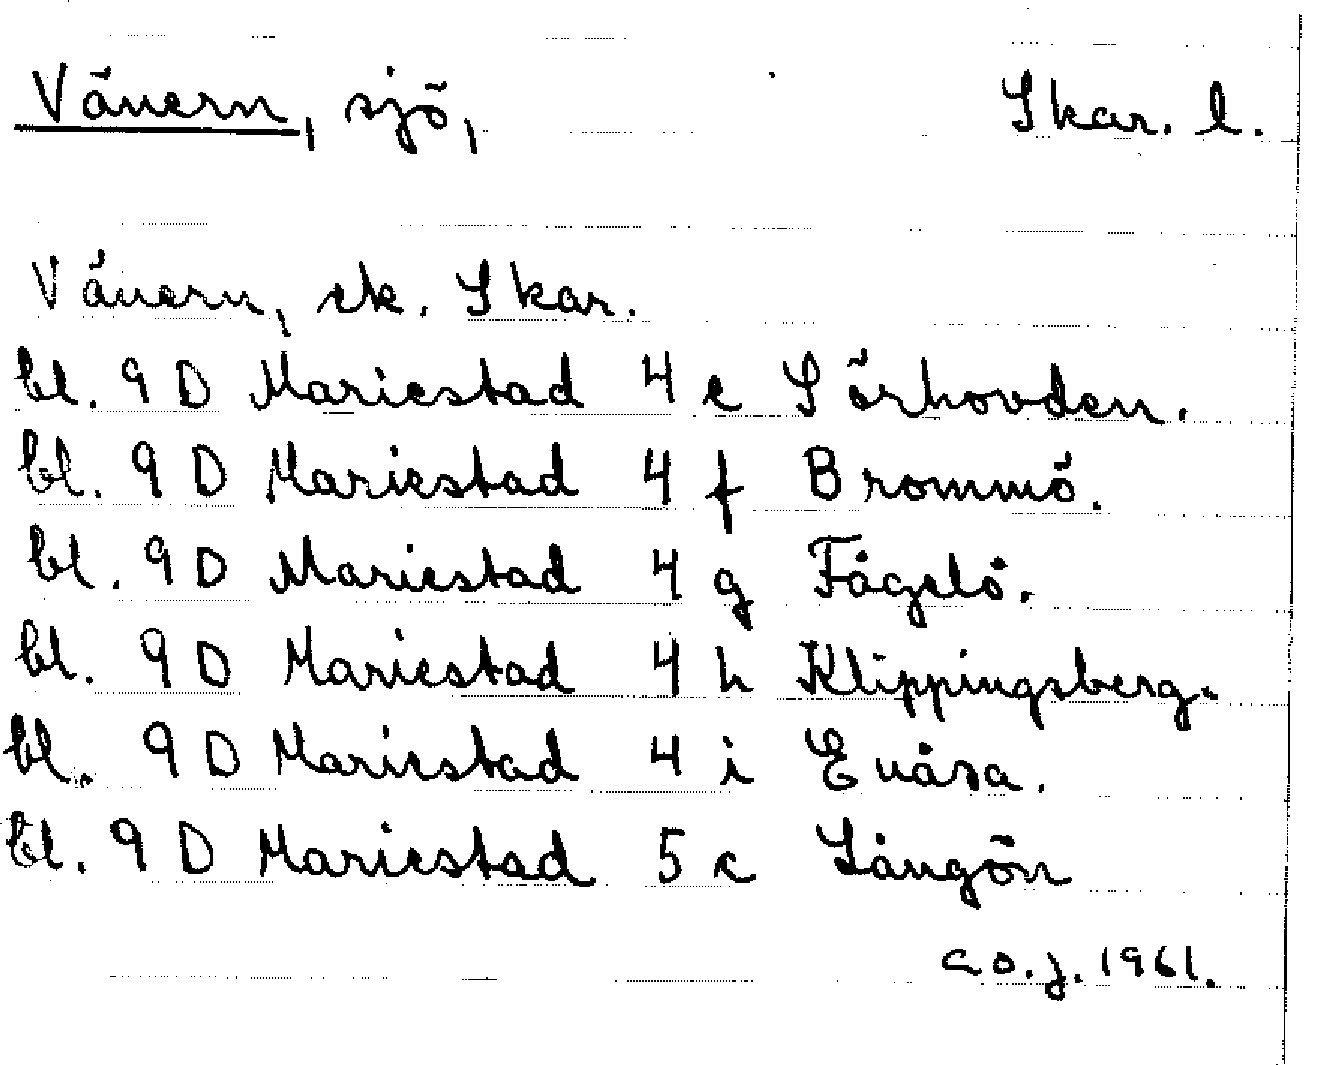 Vänern, sjö, Skar. l.
Vänern, ek. Skar.
bl. 9 D Mariestad 4 e Sörhovden.
bl. 9 D Mariestad 4 f Brommö.
bl. 9 D Mariestad 4 g Fågelö.
bl. 9 D Mariestad 4 h Klippingsberg.
bl. 9 D Mariestad 4 i Enåsa.
bl. 9 D Mariestad 5 c Långön
C.O.J. 1961.